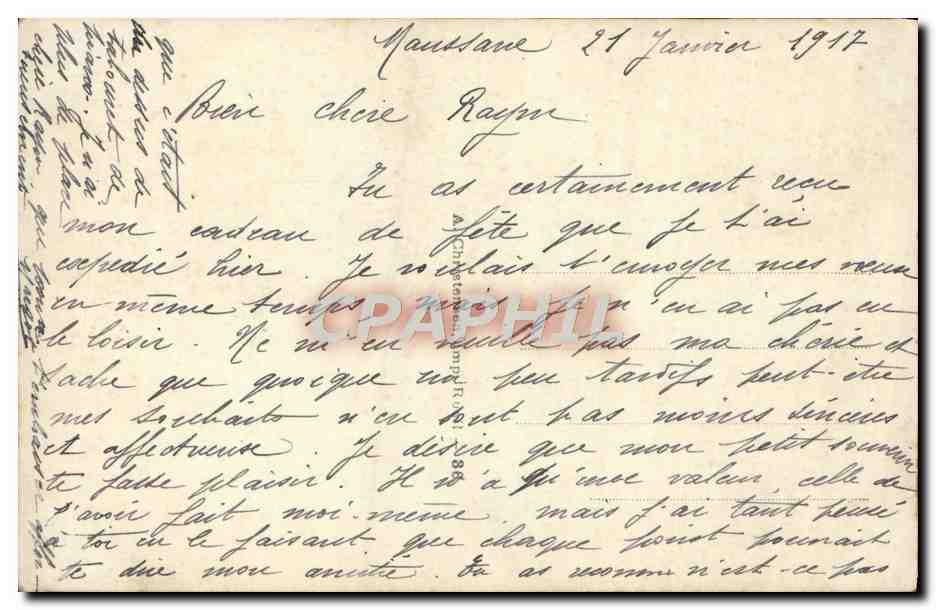 Maussane 21 Janvier 1917
Bien chère Raym
Tu as certainement recu
mon cadeau de fête que je t'ai
expédié hier. Je voulais t'envoyer mes vœux
en même temps, mais je n'en ai pas eu
le loisir. Ne m'en veuille pas ma chérie et
sache que quoique un peu tardifs peut-être
mes souhaits n'en sont pas moins sincères
et affectueux. Je désire que mon petit souvenir
te fasse plaisir. Il n'a qu'une valeur, celle de
l'avoir fait moi-même, mais j'ai tant pensé
à toi en le faisant que chaque point pourrait
te dire mon amitié. Tu as reconnu n'est-ce pas
que c'était
un dessous de
tabouret de
piano. Je n'ai
plus de place
chère Raym que pour t'embrasser affec
tueusement
CPAPHIL